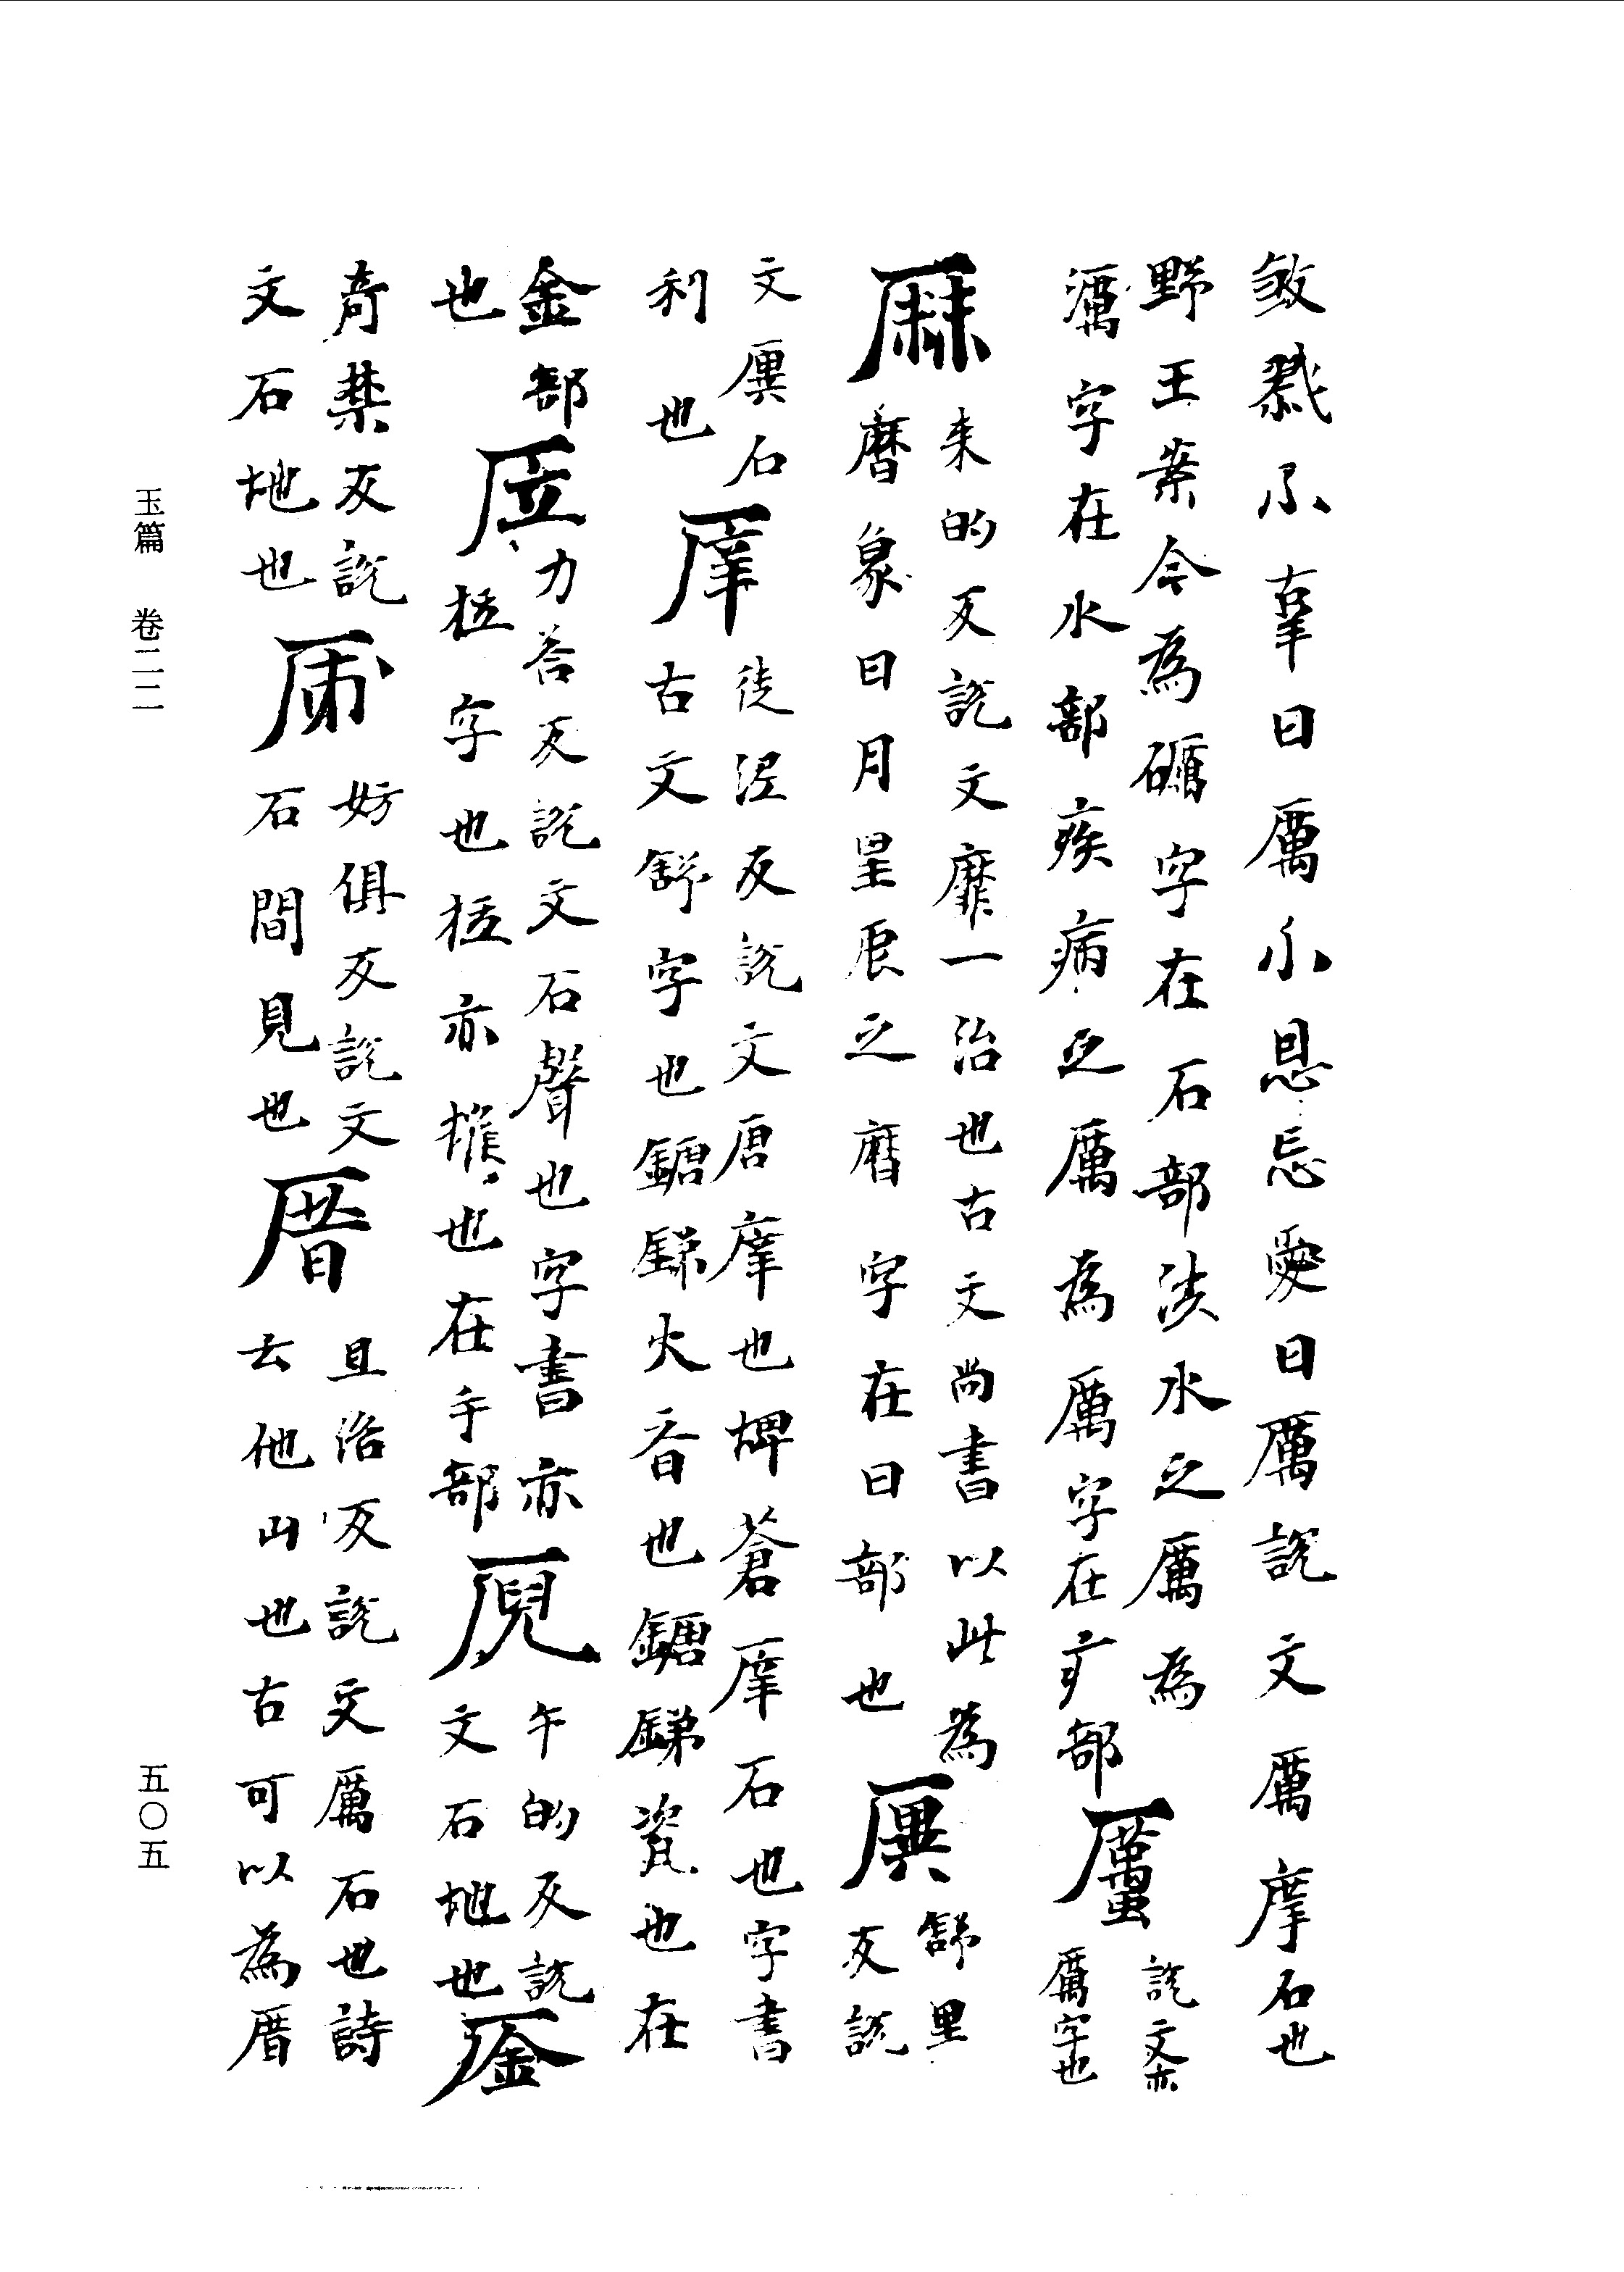 敘戮不辜曰厲小思忘愛曰厲說文厲摩石也
野王案今為礪字在石部涉水之厲為
濿字在水部疾病之厲為厲字在疒部
𠪄
說文亦
厲字也
厤
来的反說文靡一治也古文尚書以此為
曆象日月星辰之曆字在日部也
㕓
舒里
反說
文㕓石
利也
厗
徒泥反說文唐厗也埤蒼厗石也字書
古文銻字也鎕銻火齊也鎕銻瓷也在
金部
也
㕇
力荅反說文石聲也字書亦
拉字也拉亦摧也在手部
㕒
午的反說
文石地也
㕋
奇禁反說
文石地也
㕊
妨俱反說文
石間見也
厝
且洛反說文厲石也詩
云他山也石可以為厝
玉篇 卷二二
五〇五